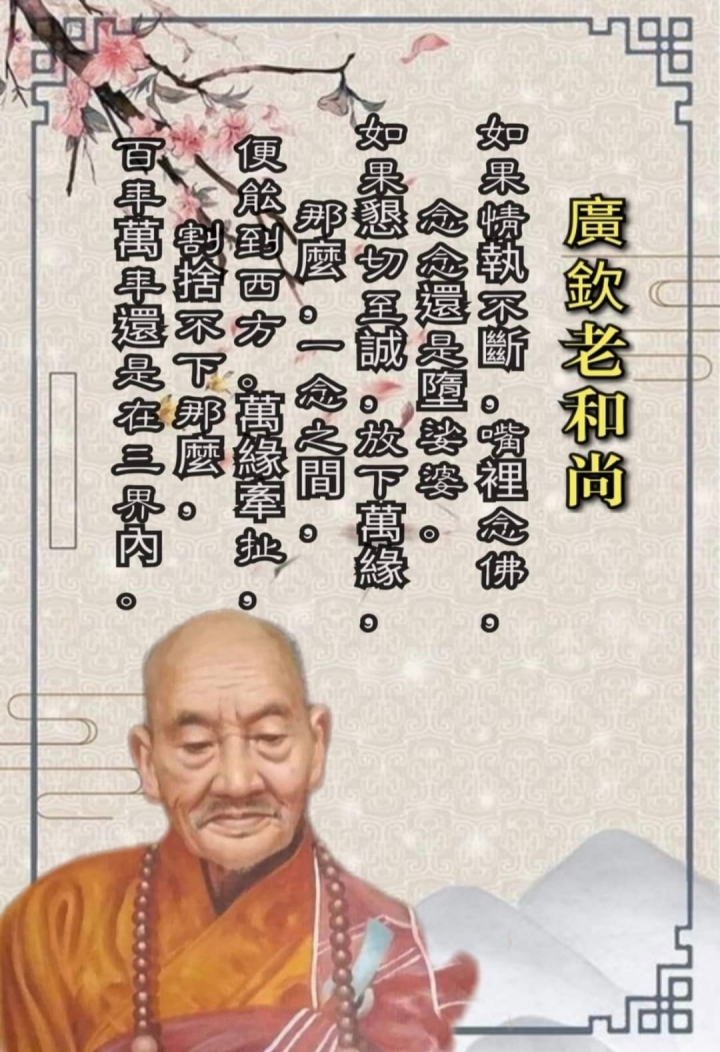 廣欽老和尚
如果情執不斷，嘴裡念佛，
念念還是墮娑婆。
如果懇切至誠，放下萬緣，
那麼，一念之間，
便能到西方。萬緣牽扯，
割捨不下那麼，
百年萬年還是在三界內。